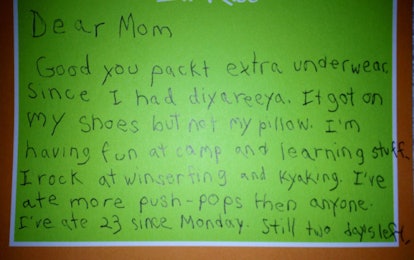 Dear Mom
Good you packt extra underwear
since I had diyareeya. It got on
my shoes but not my pillow. I'm
having fun at camp and learning stuff.
I rock at winserfing and kyaking. I've
ate more push-pops then anyone.
I've ate 23 since Monday. Still two days left.